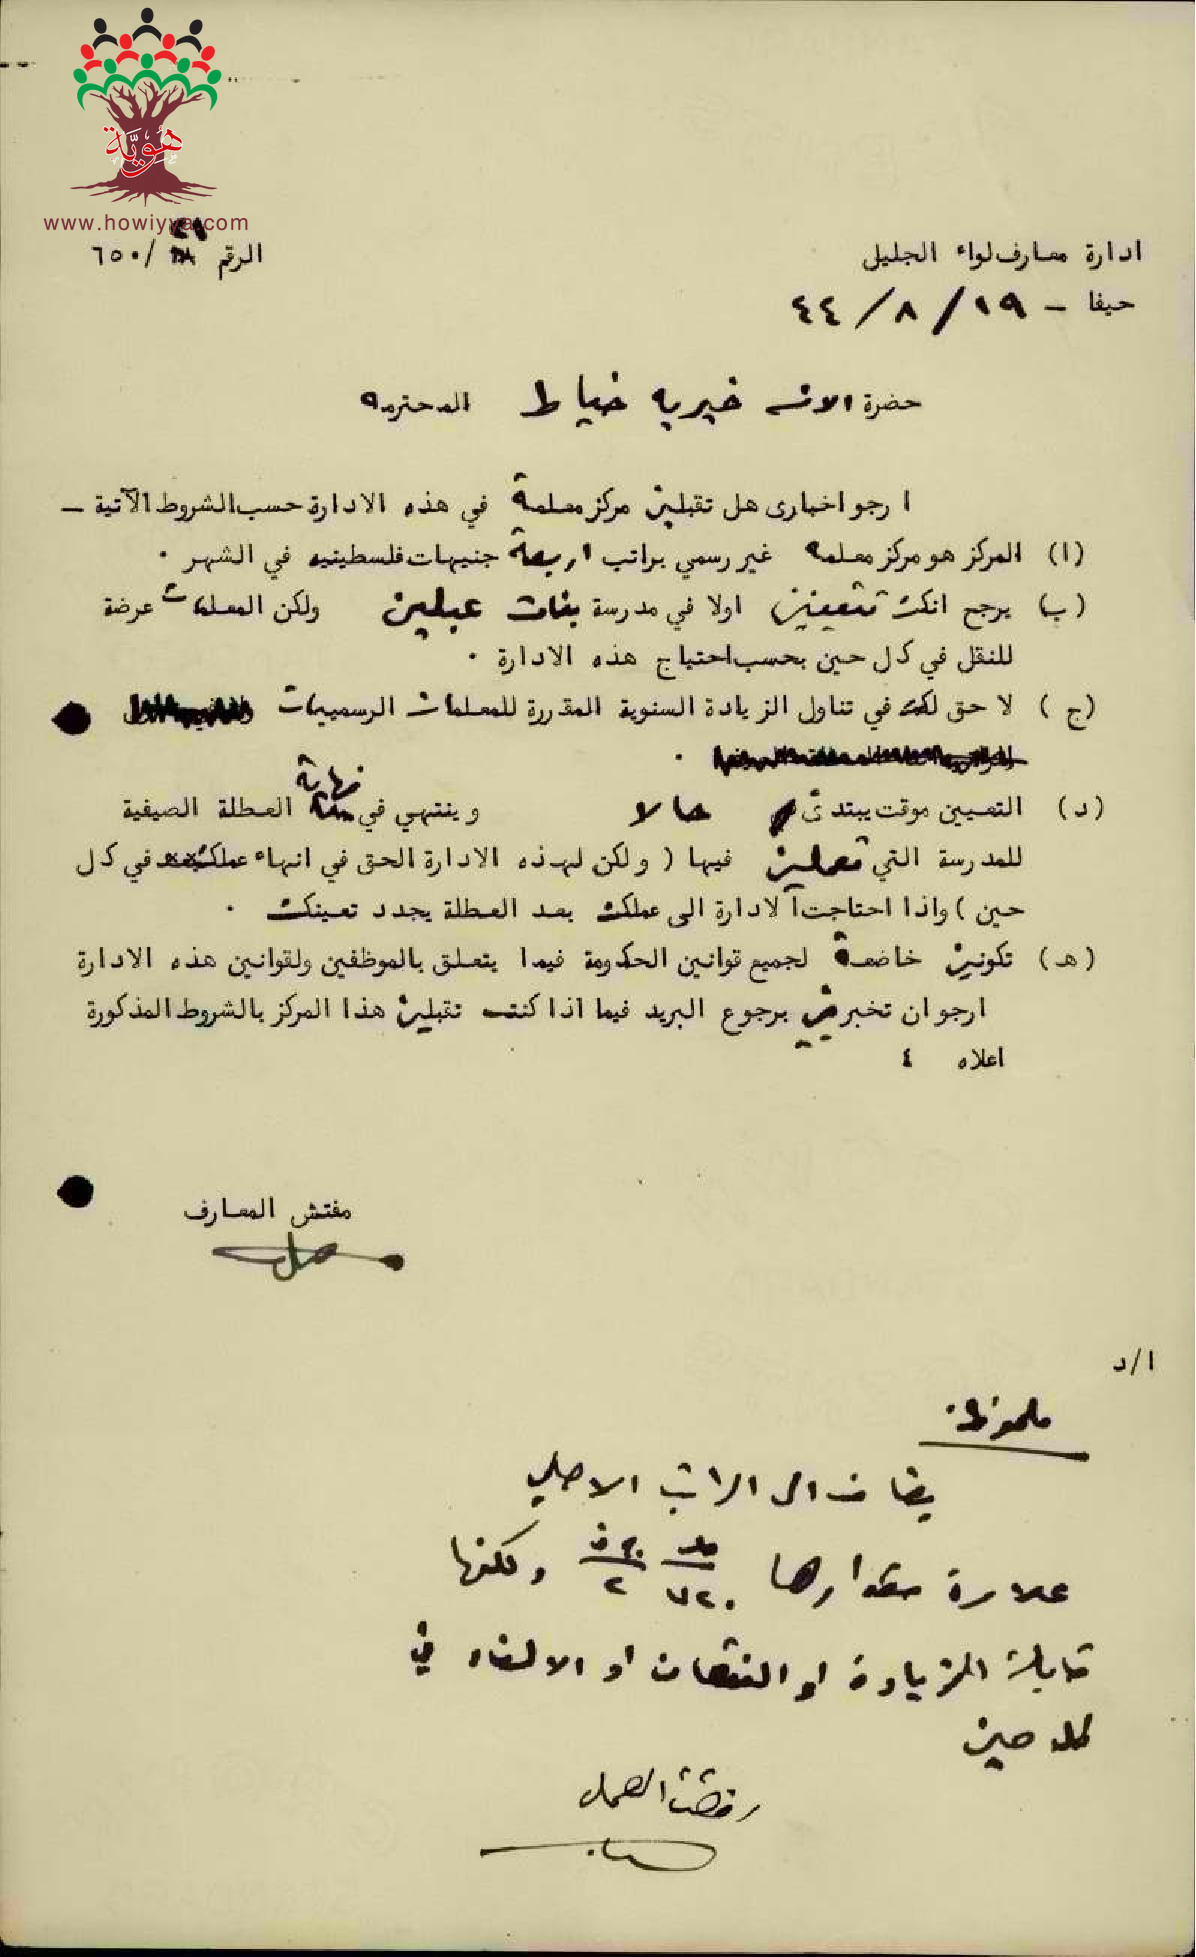 هُوِيَّة
www.howiyya.com
ادارة معارف لواء الجليل
الرقم /٦٥٠
حيفا – ١٩/٨/٤٤
حضرة الانسه خيريه خياط المحترمه
ارجو اخبارى هل تقبلين مركز معلمة في هذه الادارة حسب الشروط الآتية –
(ا) المركز هو مركز معلمه غير رسمي براتب اربعة جنيهات فلسطينيه في الشهر .
(ب) يرجح انك تتعينين اولا في مدرسة بنات عبلين ولكن المعلمات عرضة
للنقل في كل حين بحسب احتياج هذه الادارة .
(ج) لا حق لك في تناول الزيادة السنوية المقدرة للمعلمات الرسميات
(د) التعيين موقت يبتدئ حالا وينتهي في نهاية العطلة الصيفية
للمدرسة التي تعملين فيها ( ولكن لهذه الادارة الحق في انهاء عملك في كل
حين ) واذا احتاجت الادارة الى عملك بعد العطلة يجدد تعينك .
(هـ) تكونين خاضعة لجميع قوانين الحكومة فيما يتعلق بالموظفين ولقوانين هذه الادارة
ارجو ان تخبريني برجوع البريد فيما اذا كنت تقبلين هذا المركز بالشروط المذكورة
اعلاه ٤
مفتش المعارف
ا/د
ملحوظة
يضاف الى الراتب الاصلي
علاوة مقدارها مل ٧٢٠ ج ف ٢ ولكنها
قابلة الزيادة او النقصان او الالغاء في
كل حين
رفضت العمل